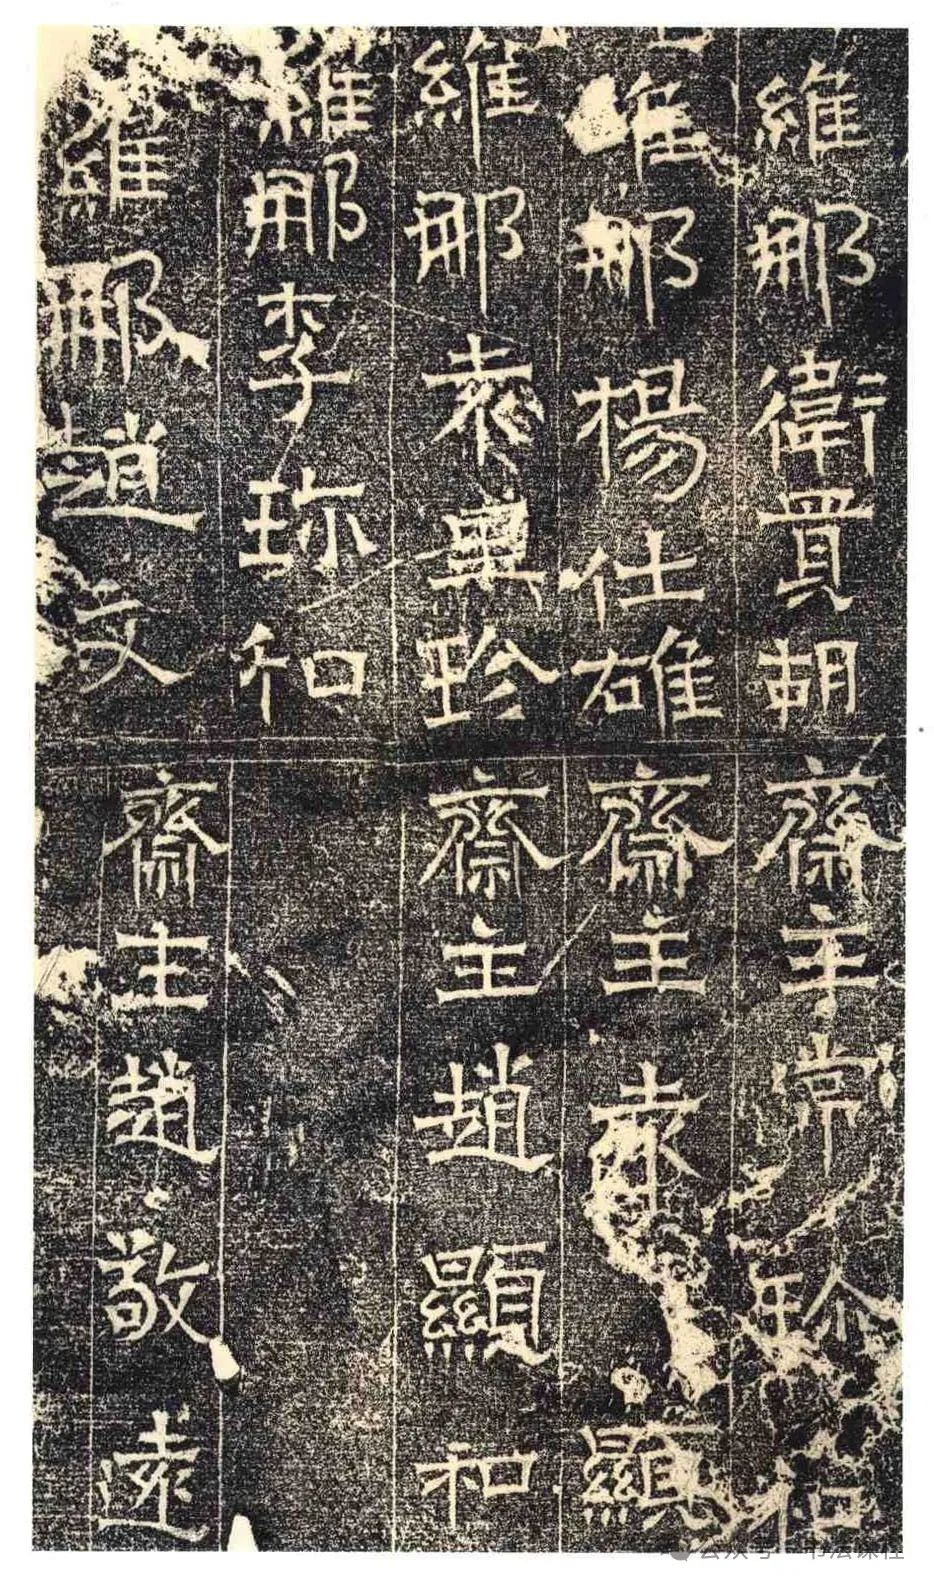 維那衛
維那楊仕雄
維那袁興
維那李珎和
維那趙文
齋主常和
齋主顯
齋主趙顯和
齋主趙敬遠
公众号·书法课程